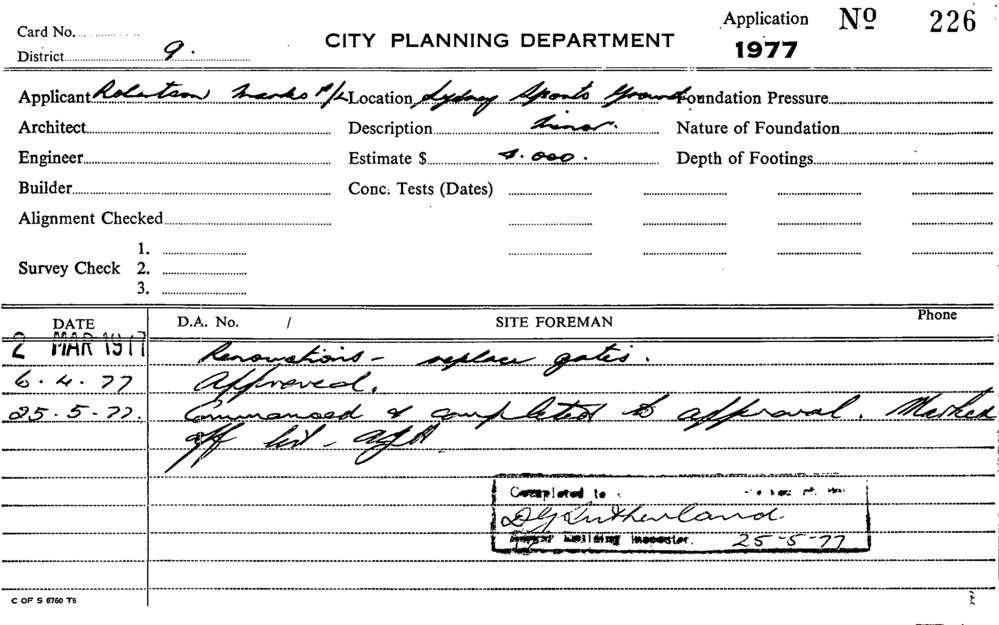 Card No.
Application Nº 226
District 9.
CITY PLANNING DEPARTMENT
1977
Applicant Robertson Marks P/L Location Sydney Sports Ground Foundation Pressure
Architect Description Minor. Nature of Foundation
Engineer Estimate $ Depth of Footings
Builder Conc. Tests (Dates)
Alignment Checked
1.
Survey Check 2.
3.
DATE D.A. No. / SITE FOREMAN Phone
2 MAR 1977 Renovations - replace gates.
6.4.77 Approved.
25.5.77. Commenced & completed to approval. Marked
off list -
Completed to
Sutherland
Building Inspector. 25-5-77
C OF S 6760 T6